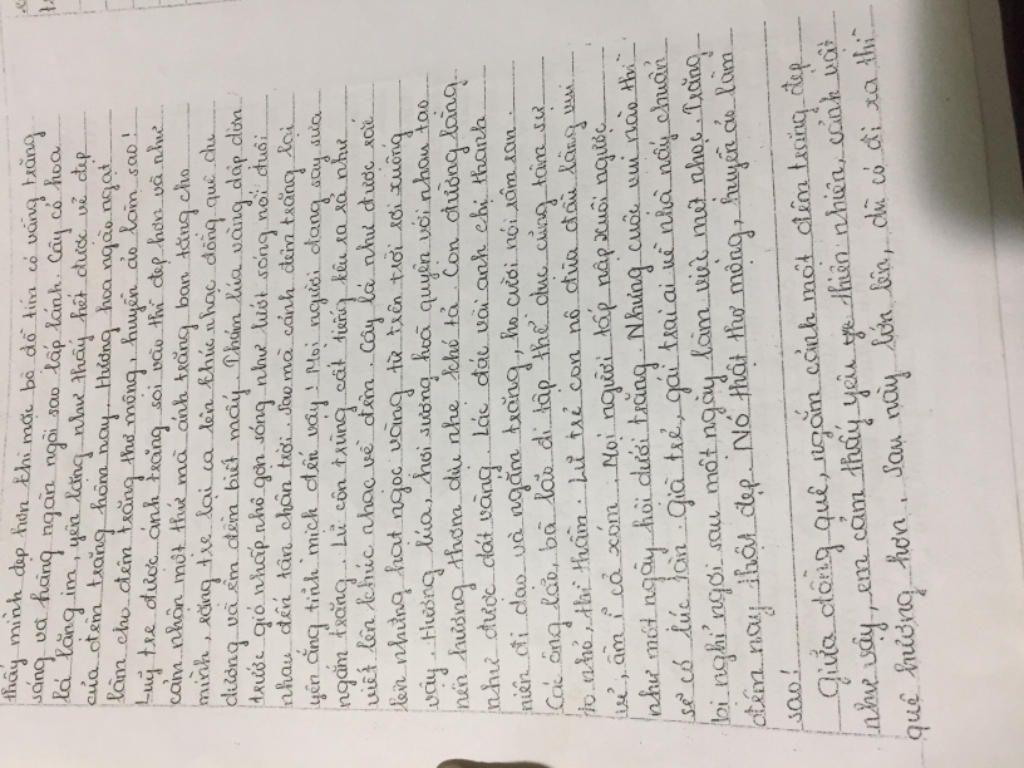 thấy mình đẹp hơn khi mái bồ đồ tím có vầng trăng
sáng và hàng ngàn ngôi sao lấp lánh. Cây cỏ hoa
lá lặng im, yên lòng như thấy hết được vẻ đẹp
của đêm trăng hôm nay. Hương hoa ngào ngạt
làm cho đêm trăng thơ mộng, huyền ảo làm sao!
Luỹ tre được ánh trăng soi vào thì đẹp hơn và như
cảm nhận một thứ mà ánh trăng ban tặng cho
mình, rặng tre lại ca lên khúc nhạc đồng quê du
dương và êm đềm biết mấy. Thảm lúa vàng dập dờn
trước gió nhấp nhô gợn sóng như lướt sóng nối đuôi
nhau đến tận chân trời. Sao mà cảnh đêm trăng lại
yên ắng tĩnh mịch đến vậy! Mọi người đang say sưa
ngắm trăng. Lũ côn trùng cất tiếng kêu ra rả như
viết lên khúc nhạc về đêm. Cây lá như được rải
lên những hạt ngọc vàng từ trên trời rơi xuống
vậy. Hương lúa, hơi sương hoà quyện với nhau tạo
nên hương thơm dịu nhẹ khó tả. Con đường làng
như được dát vàng. Lác đác vài anh chị thanh
niên đi dạo và ngắm trăng, họ cười nói rôm ran.
Các ông lão, bà lão đi tập thể dục cùng tâm sự
to nhỏ, thì thầm. Lũ trẻ con nô đùa đâu lòng vui
vẻ, ầm ĩ cả xóm. Mọi người tấp nập xuôi ngược
như một ngày hội dưới trăng. Những cuộc vui nào thì
sẽ có lúc tàn. Già trẻ, gái trai ai về nhà nấy chuẩn
bị nghỉ ngơi sau một ngày làm việc mệt nhọc. Trăng
đêm nay thật đẹp. Nó thật thơ mộng, huyền ảo làm
sao!
Giữa đồng quê, ngắm cảnh một đêm trăng đẹp
như vậy, em cảm thấy yêu thiên nhiên, cảnh vật
quê hương hơn. Sau này lớn lên, dù có đi xa thì